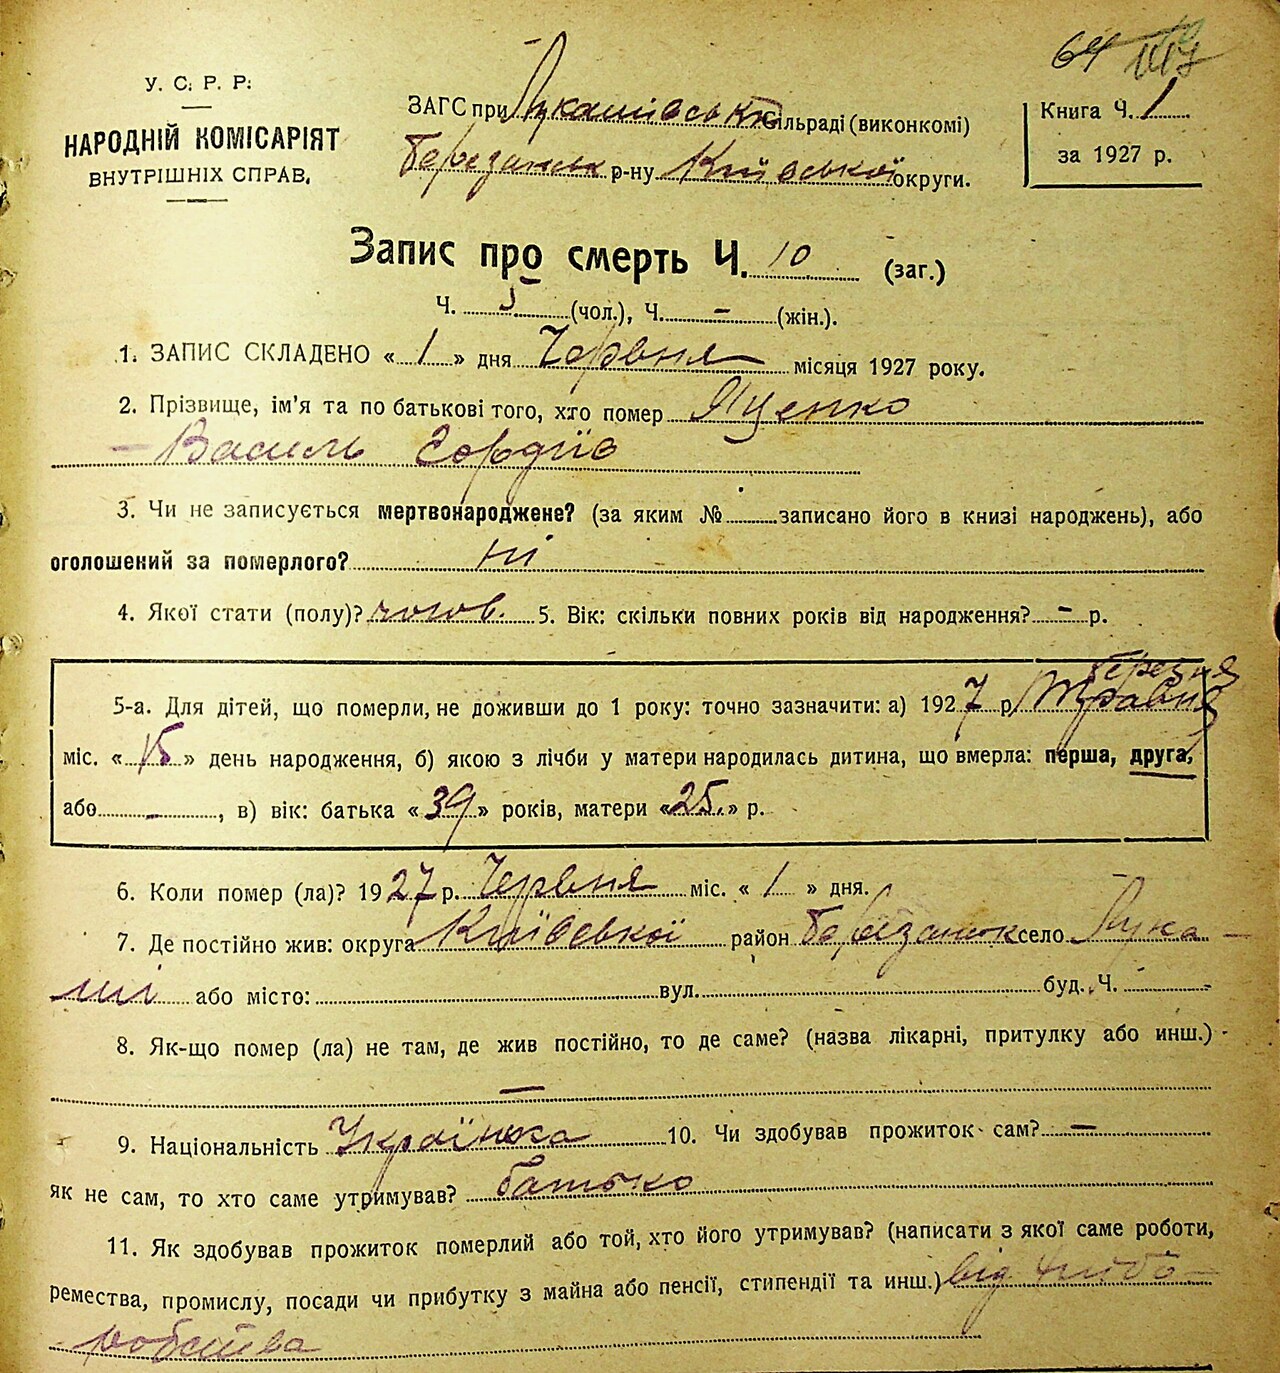 64
У. С. Р. Р.
НАРОДНІЙ КОМІСАРІЯТ
ВНУТРІШНІХ СПРАВ.
ЗАГС при Лукашівській сільраді (виконкомі)
Березанськ р-ну Київської округи.
Книга Ч. 1
за 1927 р.
Запис про смерть Ч. 10 (заг.)
Ч. 5 (чол.), Ч. – (жін.).
1. ЗАПИС СКЛАДЕНО « 1 » дня Червня місяця 1927 року.
2. Прізвище, ім'я та по батькові того, хто помер Яценко
Василь Гордіїв
3. Чи не записується мертвонароджене? (за яким № записано його в книзі народжень), або
оголошений за померлого? ні
4. Якої стати (полу)? чолов. 5. Вік: скільки повних років від народження? – р.
березня
5-а. Для дітей, що померли, не доживши до 1 року: точно зазначити: а) 1927 р. Травня
міс. « 15 » день народження, б) якою з лічби у матери народилась дитина, що вмерла: перша, друга,
або –, в) вік: батька « 39 » років, матери « 25. » р.
6. Коли помер (ла)? 1927 р. Червня міс. « 1 » дня.
7. Де постійно жив: округа Київської район Березанськ село Лука-
ші або місто: вул. буд. Ч.
8. Як-що помер (ла) не там, де жив постійно, то де саме? (назва лікарні, притулку або инш.)
–
9. Національність Українка 10. Чи здобував прожиток сам? –
як не сам, то хто саме утримував? батько
11. Як здобував прожиток померлий або той, хто його утримував? (написати з якої саме роботи,
ремества, промислу, посади чи прибутку з майна або пенсії, стипендії та инш.) від хлібо-
робства